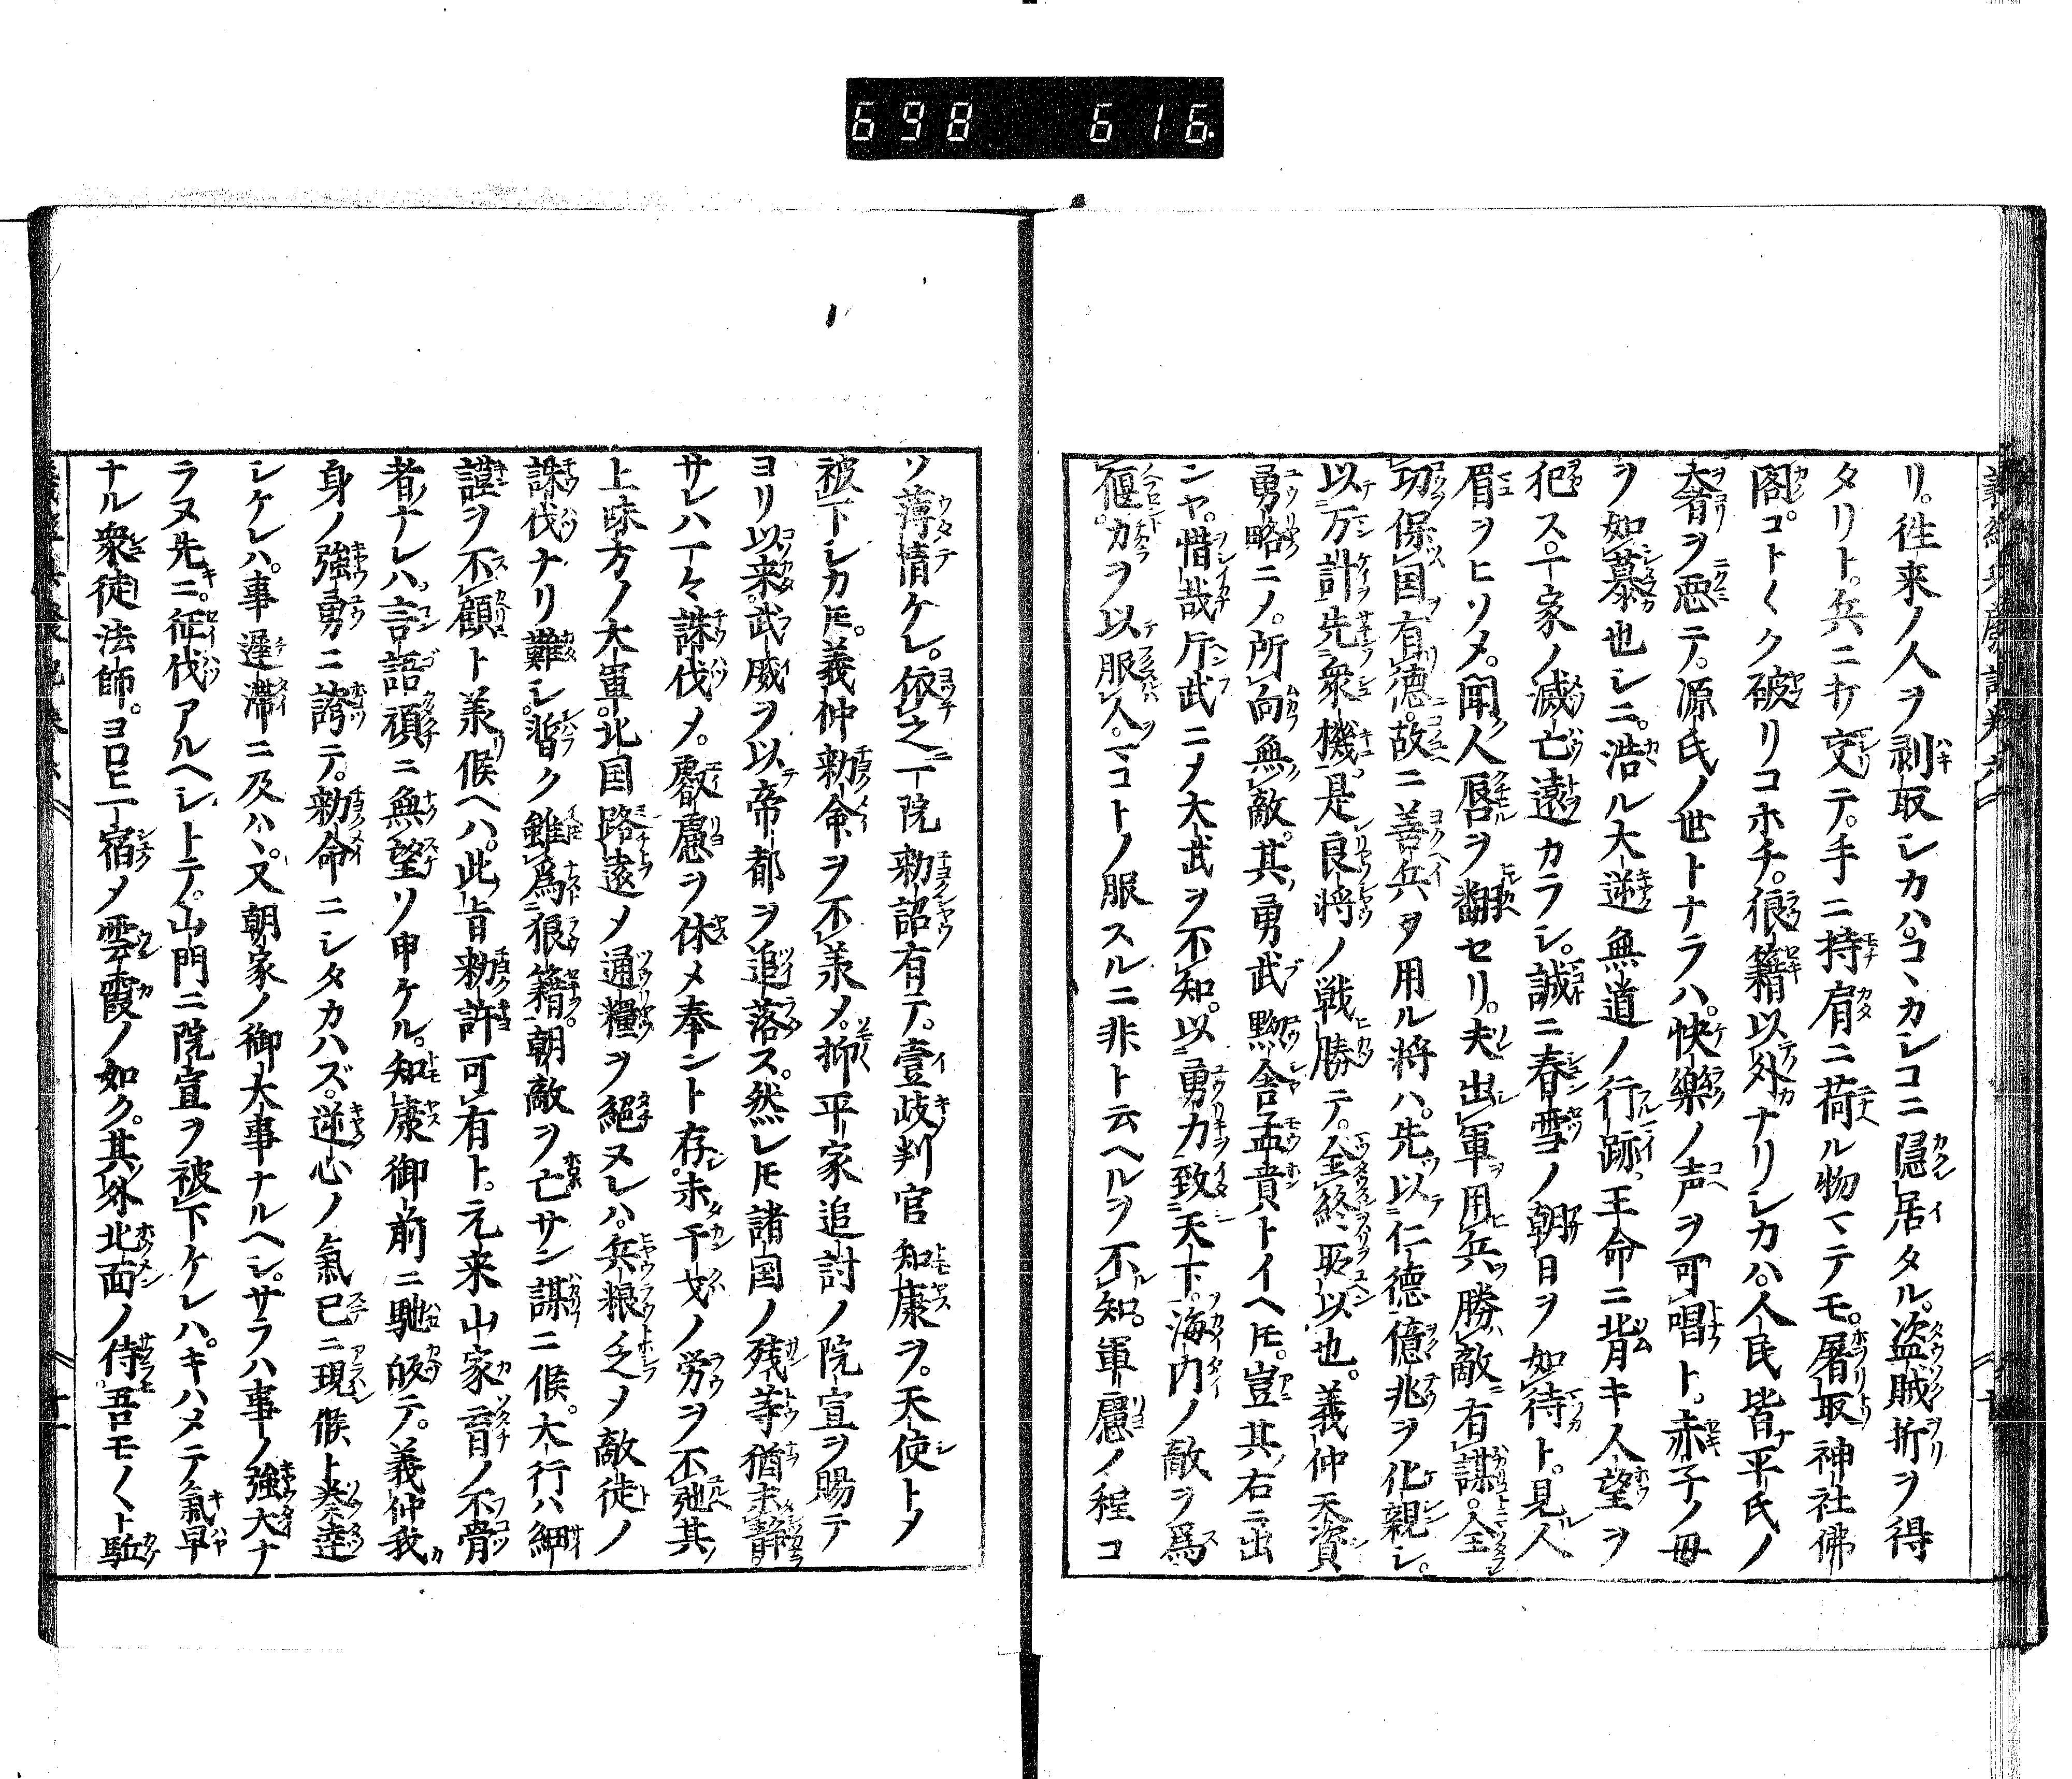 698 616
リ。往来ノ人ヲ剥取シカハ。コヽカシコニ隠居タル。盗賊折ヲ得
タリト。兵ニ打交テ。手ニ持肩ニ荷ル物マテモ。屠取神社佛
閣。コト〱ク破リコホチ。狼籍以外ナリシカハ。人民皆平氏ノ
奢ヲ悪テ。源氏ノ世トナラハ。快樂ノ声ヲ可唱ト。赤子ノ毋
ヲ如慕也シニ。浩ル大逆無道ノ行跡。王命ニ背キ人望ヲ
犯ス。一家ノ滅亡遠カラシ。誠ニ春雪ノ朝日ヲ如待ト。見人
眉ヲヒソメ。聞人唇ヲ翻セリ。夫出軍用兵勝敵有謀。全
切保国有德。故ニ善兵ヲ用ル将ハ。先以仁德億兆ヲ化親シ。
以万計先衆機。是良将ノ戦勝テ。全終所以也。義仲天資
勇略ニノ。所向無敵。其勇武黝舎孟賁トイヘ𪜈。豈其右ニ出
ンヤ。惜哉斤武ニノ大武ヲ不知。以勇力致天下。海内ノ敵ヲ爲
偃。カヲ以服人。マコトノ服スルニ非ト云ヘルヲ不知。軍慮ノ程コ
ソ薄情ケレ。依之一院勅詔有テ。壹岐判官知康ヲ。天使トメ
被下シカ𪜈。義仲勅命ヲ不羕メ。抑平家追討ノ院宣ヲ賜テ
ヨリ以来。武威ヲ以帝都ヲ追落ス。然レ𪜈諸国ノ残等猶未静。
サレハ一〻誅伐メ。叡慮ヲ休メ奉ント存。未干戈ノ労ヲ不弛其
上味方ノ大軍。北国路遠メ通糧ヲ絕ヌレハ。兵粮乏メ敵徒ノ
誅伐ナリ難シ。暫ク雖爲狼籍。朝敵ヲ亡サン謀ニ候。大行ハ細
謹ヲ不顧ト羕候ヘハ。此旨勅許可有ト。元来山家育ノ不骨
者ナレハ。言語頑ニ無望ソ申ケル。知康御前ニ馳皈テ。義仲我
身ノ強勇ニ誇テ。勅命ニシタカハズ。逆心ノ氣已ニ現候ト奏達
シケレハ。事遅滞ニ及ハヽ。又朝家ノ御大事ナルヘシ。サラハ事ノ強大ナ
ラヌ先ニ。征伐アルヘシトテ。山門ニ院宣ヲ被下ケレハ。キハメテ氣早
ナル衆徒法師。ヨロヒ一宿メ雲霞ノ如ク。其外北面ノ侍。吾モ〱ト駈